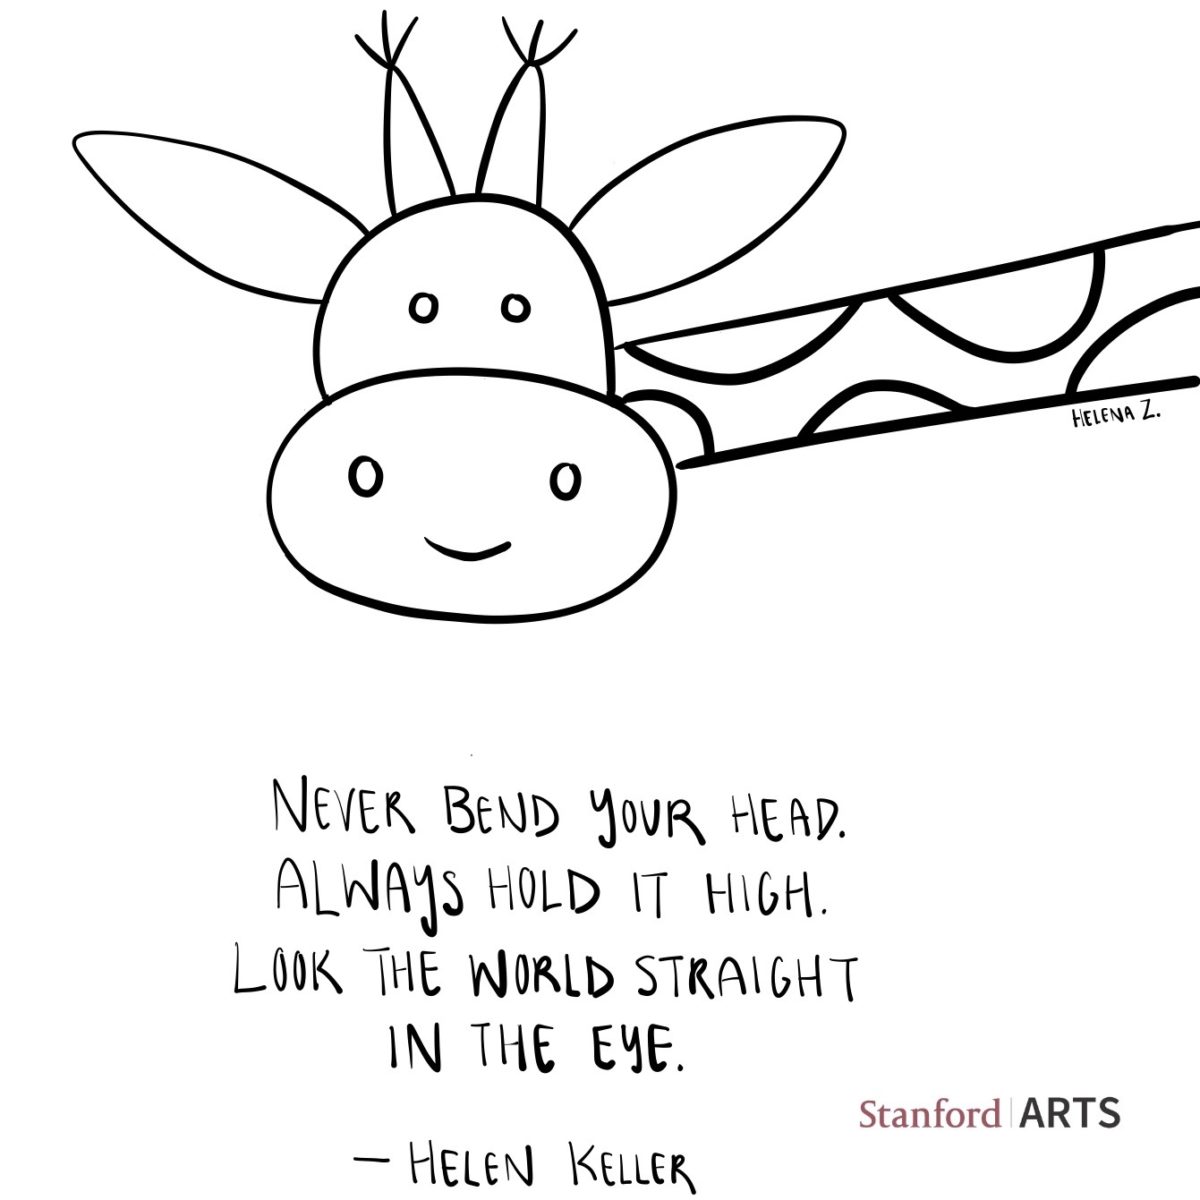 HELENA Z.
NEVER BEND YOUR HEAD.
ALWAYS HOLD IT HIGH.
LOOK THE WORLD STRAIGHT
IN THE EYE.
Stanford | ARTS
— HELEN KELLER